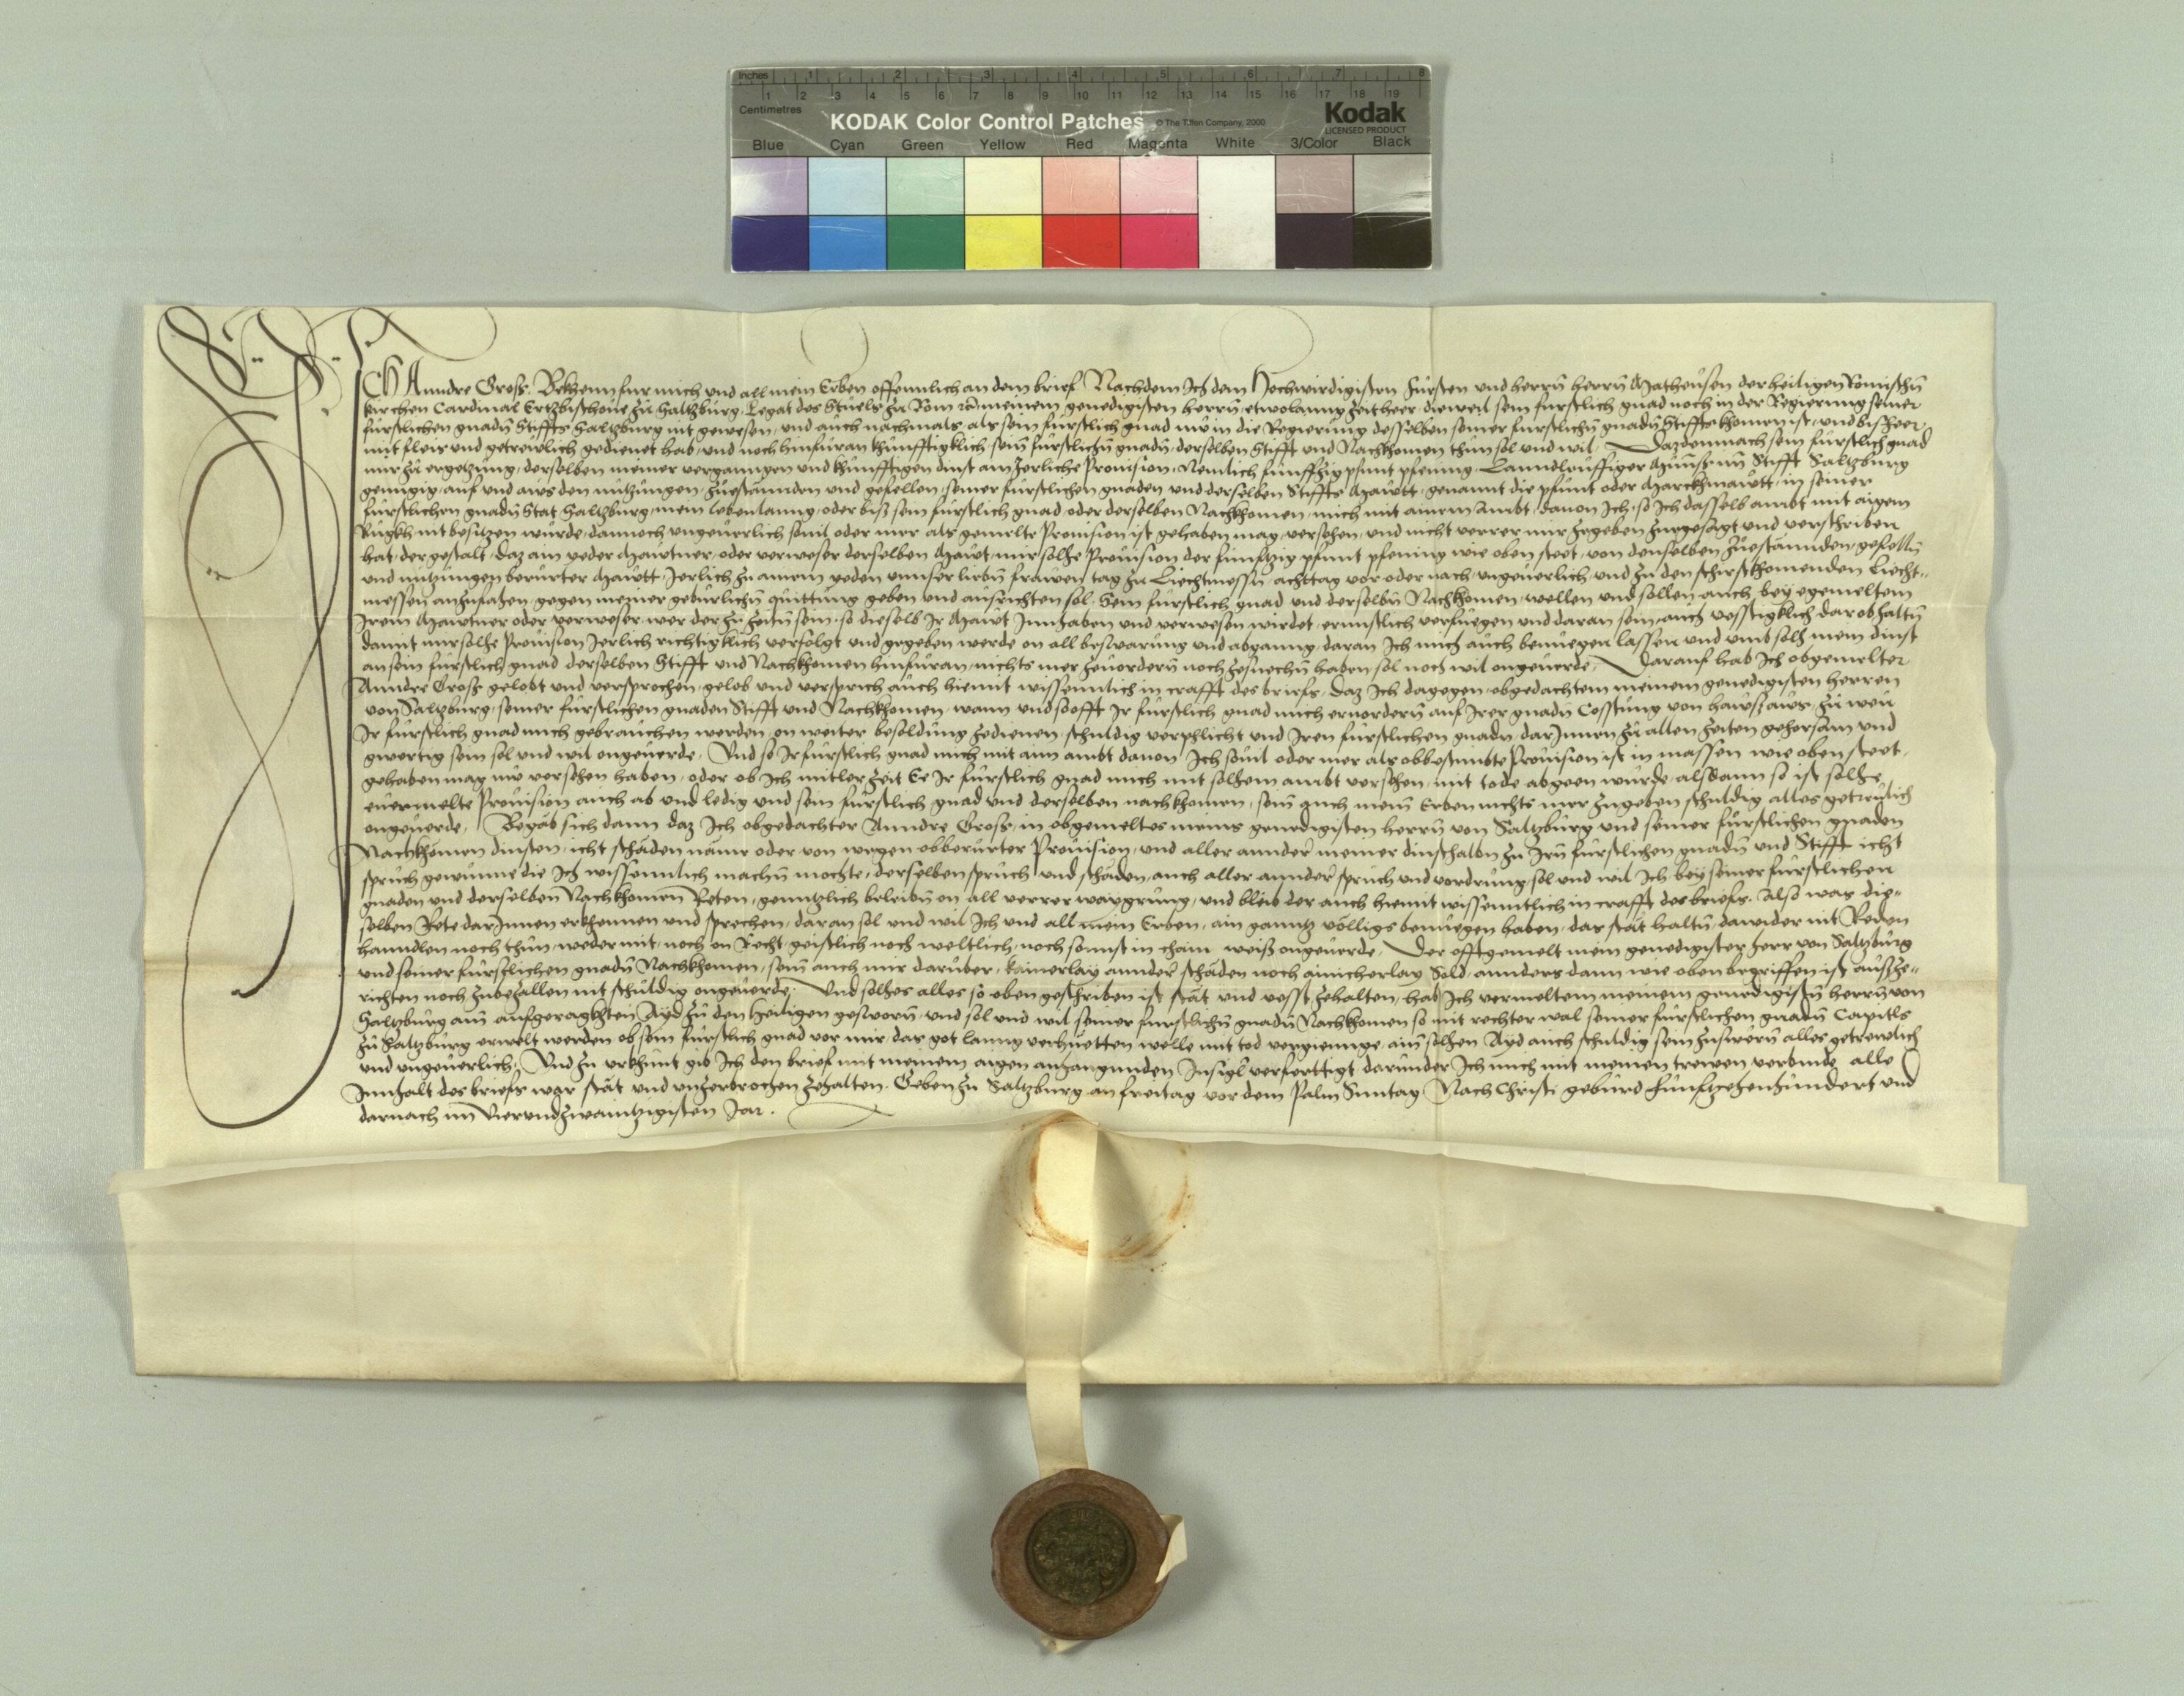 Inches 1 2 3 4 5 6 7 8
1 2 3 4 5 6 7 8 9 10 11 12 13 14 15 16 17 18 19
Centimetres
KODAK Color Control Patches © The Tiffen Company, 2000 Kodak
LICENSED PRODUCT
Blue Cyan Green Yellow Red Magenta White 3/Color Black
ICH Anndre Gross. Bekhenn fur mich und all mein Erben offennlich an dem brief Nachdem Ich dem Hochwirdigisten Fürsten und herrn̄ herrn̄ Matheusen der heiligen Römischn̄
kirchen Cardinal Ertzbischoue zu Saltzburg, Legat des Stuels zu Rom meinem genedigisten herrn̄, etwolanng zeit heer, dieweil sein fürstlich gnad noch in der Regierung seiner
fürstlichen gnadn̄ Stiffts Saltzburg nit gewesen, und auch nachmals als sein fürstlich gnad nw in die Regierung desselben seiner fürstlichn̄ gnadn̄ Stiffts khomen ist, und bisheer
mit fleis und getrewlich gedienet hab, und noch hinfüran khünfftigklich sein̄ fürstlichn̄ gnadn̄, derselben Stifft und Nachkhomen thun sol und wil. Daz demnach sein fürstlich gnad
mir zu ergetzung, derselben meiner verganngen und khünfftigen dinst ain Jerliche Provision, Nemlich fünffzig pfunt pfening, Lanndleuffiger Münss im̄ Stifft Saltzburg
genngig, auf und aus den nutzungen, zuestännden und gefellen, seiner fürstlichen gnaden und derselben Stiffts Mawtt, genannt die pfunt oder Marckhmawtt, in seiner
fürstlichen gnadn̄ Stat Saltzburg, mein lebenlanng, oder biss sein fürstlich gnad, oder derselben Nachkhomen, mich mit ainem Ambt, dauon Ich, so Ich dasselb ambt mit aigem
Rugkh nit besitzen würde, dannoch ungeuerlich souil oder mer als gemelte Provision ist gehaben mag, versehen, und nicht verrer mir zegeben zuegesagt und verschriben
hat, dergestalt, daz ain yeder Mawtner, oder verweser derselben Mawt, mir solhe Provision der fünfftzig pfunt pfening wie oben steet, von denselben zuestännden, gefelln̄
und nutzungen berürter Mawtt Jerlich zu ainem yeden unnser liebn̄ frawen tag zu Liechtmessn̄, achttag vor oder nach, ungeuerlich, und zu den schirstkhomenden Liecht-
messen anzufahen, gegen meiner gebürlichn̄ quittung geben und ausrichten sol. Sein fürstlich gnad und derselbn̄ Nachkhomen, wellen und sollen auch bey egemeltem
Irem Mawtner oder verweser, wer der zu Zeitn̄ sein, so dieselb Ir Mawt Innhaben und verwesen wirdet, ernnstlich verfuegen und daran sein, auch vesstigklich darob haltn̄
damit mir solhe Provision Jerlich richtigklich verfolgt und gegeben werde on all beswarung und abganng, daran Ich mich auch benuegen lassen und umb solh mein dinst
an sein fürstlich gnad derselben Stifft und Nachkhomen hinfüran, nichts mer zeuordern̄ noch zesuechn̄ haben sol noch wil ongeuerde. Darauf hab Ich obgemelter
Anndre Gross gelobt und versprochen, gelob und versprich auch hiemit wissenntlich in crafft des briefs, daz Ich dagegen obgedachtem meinem genedigisten herren
von Saltzburg, seiner fürstlichen gnaden Stifft und Nachkhomen, wann und so offt Ir fürstlich gnad mich eruordern̄ auf Irer gnadn̄ Cosstung von haws aws, zu wew
Ir fürstlich gnad mich gebrauchen werden, on weiter besoldung zedienen, schuldig verphlicht und Iren fürstlichen gnadn̄ darInnen zu allen zeiten gehorsam und
gwertig sein sol und wil ongeuerde. Und so Ir fürstlich gnad mich mit aim ambt dauon Ich souil oder mer als obbestimbte Provision ist in massen wie oben steet,
gehaben mag nw versehen haben, oder ob Ich mitler zeit Ee Ir fürstlich gnad mich mit solhem ambt versehen, mit tode abgeen würde, alsdann so ist solhe
euermelte Provision auch ab und ledig und sein fürstlich gnad und derselben nachkhomen, sein̄ auch mein̄ Erben nichts mer zugeben schuldig alles getreulich
ongeuerde. Begäb sich dann daz Ich obgedachter Anndre Gross, in obgemeltes meins genedigisten herrn̄ von Saltzburg und seiner fürstlichen gnaden
Nachkhomen dinsten, icht schäden näme oder von wegen obberürter Provision, und aller annder meiner dinsthalbn zu Irn̄ fürstlichen gnadn̄ und Stifft icht
spruch gewunne die Ich wissenntlich machn̄ mochte, derselben spruch und schäden, auch aller annder spruch und vordrung, sol und wil Ich bey seiner fürstlichen
gnaden und derselben̄ Nachkhomen̄ Reten, genntzlich beleibn̄ on all verrer waygrung, und bleib der auch hiemit wissenntlich in crafft des briefs. Also was die-
selben Rete darInnen erkhennen und sprechen, daran sol und wil Ich und all mein Erben, ain ganntz völligs benuegen haben, das stät haltn̄, dawider nit Reden
hanndlen noch thun, weder mit, noch on Recht, geistlich noch weltlich, noch sonnst in chain weiss ongeuerde. Der offtgemelt mein genedigister herr von Saltzburg
und seiner fürstlichen gnadn̄ Nachkhomen, sein̄ auch mir darüber, kainerlay annder schäden noch ainicherlay Sold, annders dann wie oben begriffen ist ausze-
richten noch zubezallen nit schuldig ongeuerde. Und solhes alles so oben geschriben ist stät und vesst zehalten, hab Ich vermeltem meinem genedigistn̄ herrn̄ von
Saltzburg ain̄ aufgeragkhten Ayd zu den heiligen gesworn̄, und sol und wil seiner fürstlichn̄ gnadn̄ Nachkhomen so mit rechter wal seiner fürstlichen gnadn̄ Capitls
zu Saltzburg erwelt werden ob sein fürstlich gnad vor mir, das got lanng verhuetten welle mit tod vergiennge, ain̄ solhen Ayd auch schuldig sein zuswern̄ alles getrewlich
und ungeuerlich. Und zu urkhunt gib Ich den brief mit meinem aigen anhangunden Insigl verferttigt darunder Ich mich mit meinen trewen verbinde alle
Innhalt des briefs war stät und unzerbrochen zehalten. Geben zu Saltzburg an freitag vor dem Palm Sunntag Nach Christi geburd fünfftzehenhundert und
darnach im Vierundzwaintzigisten Jar.